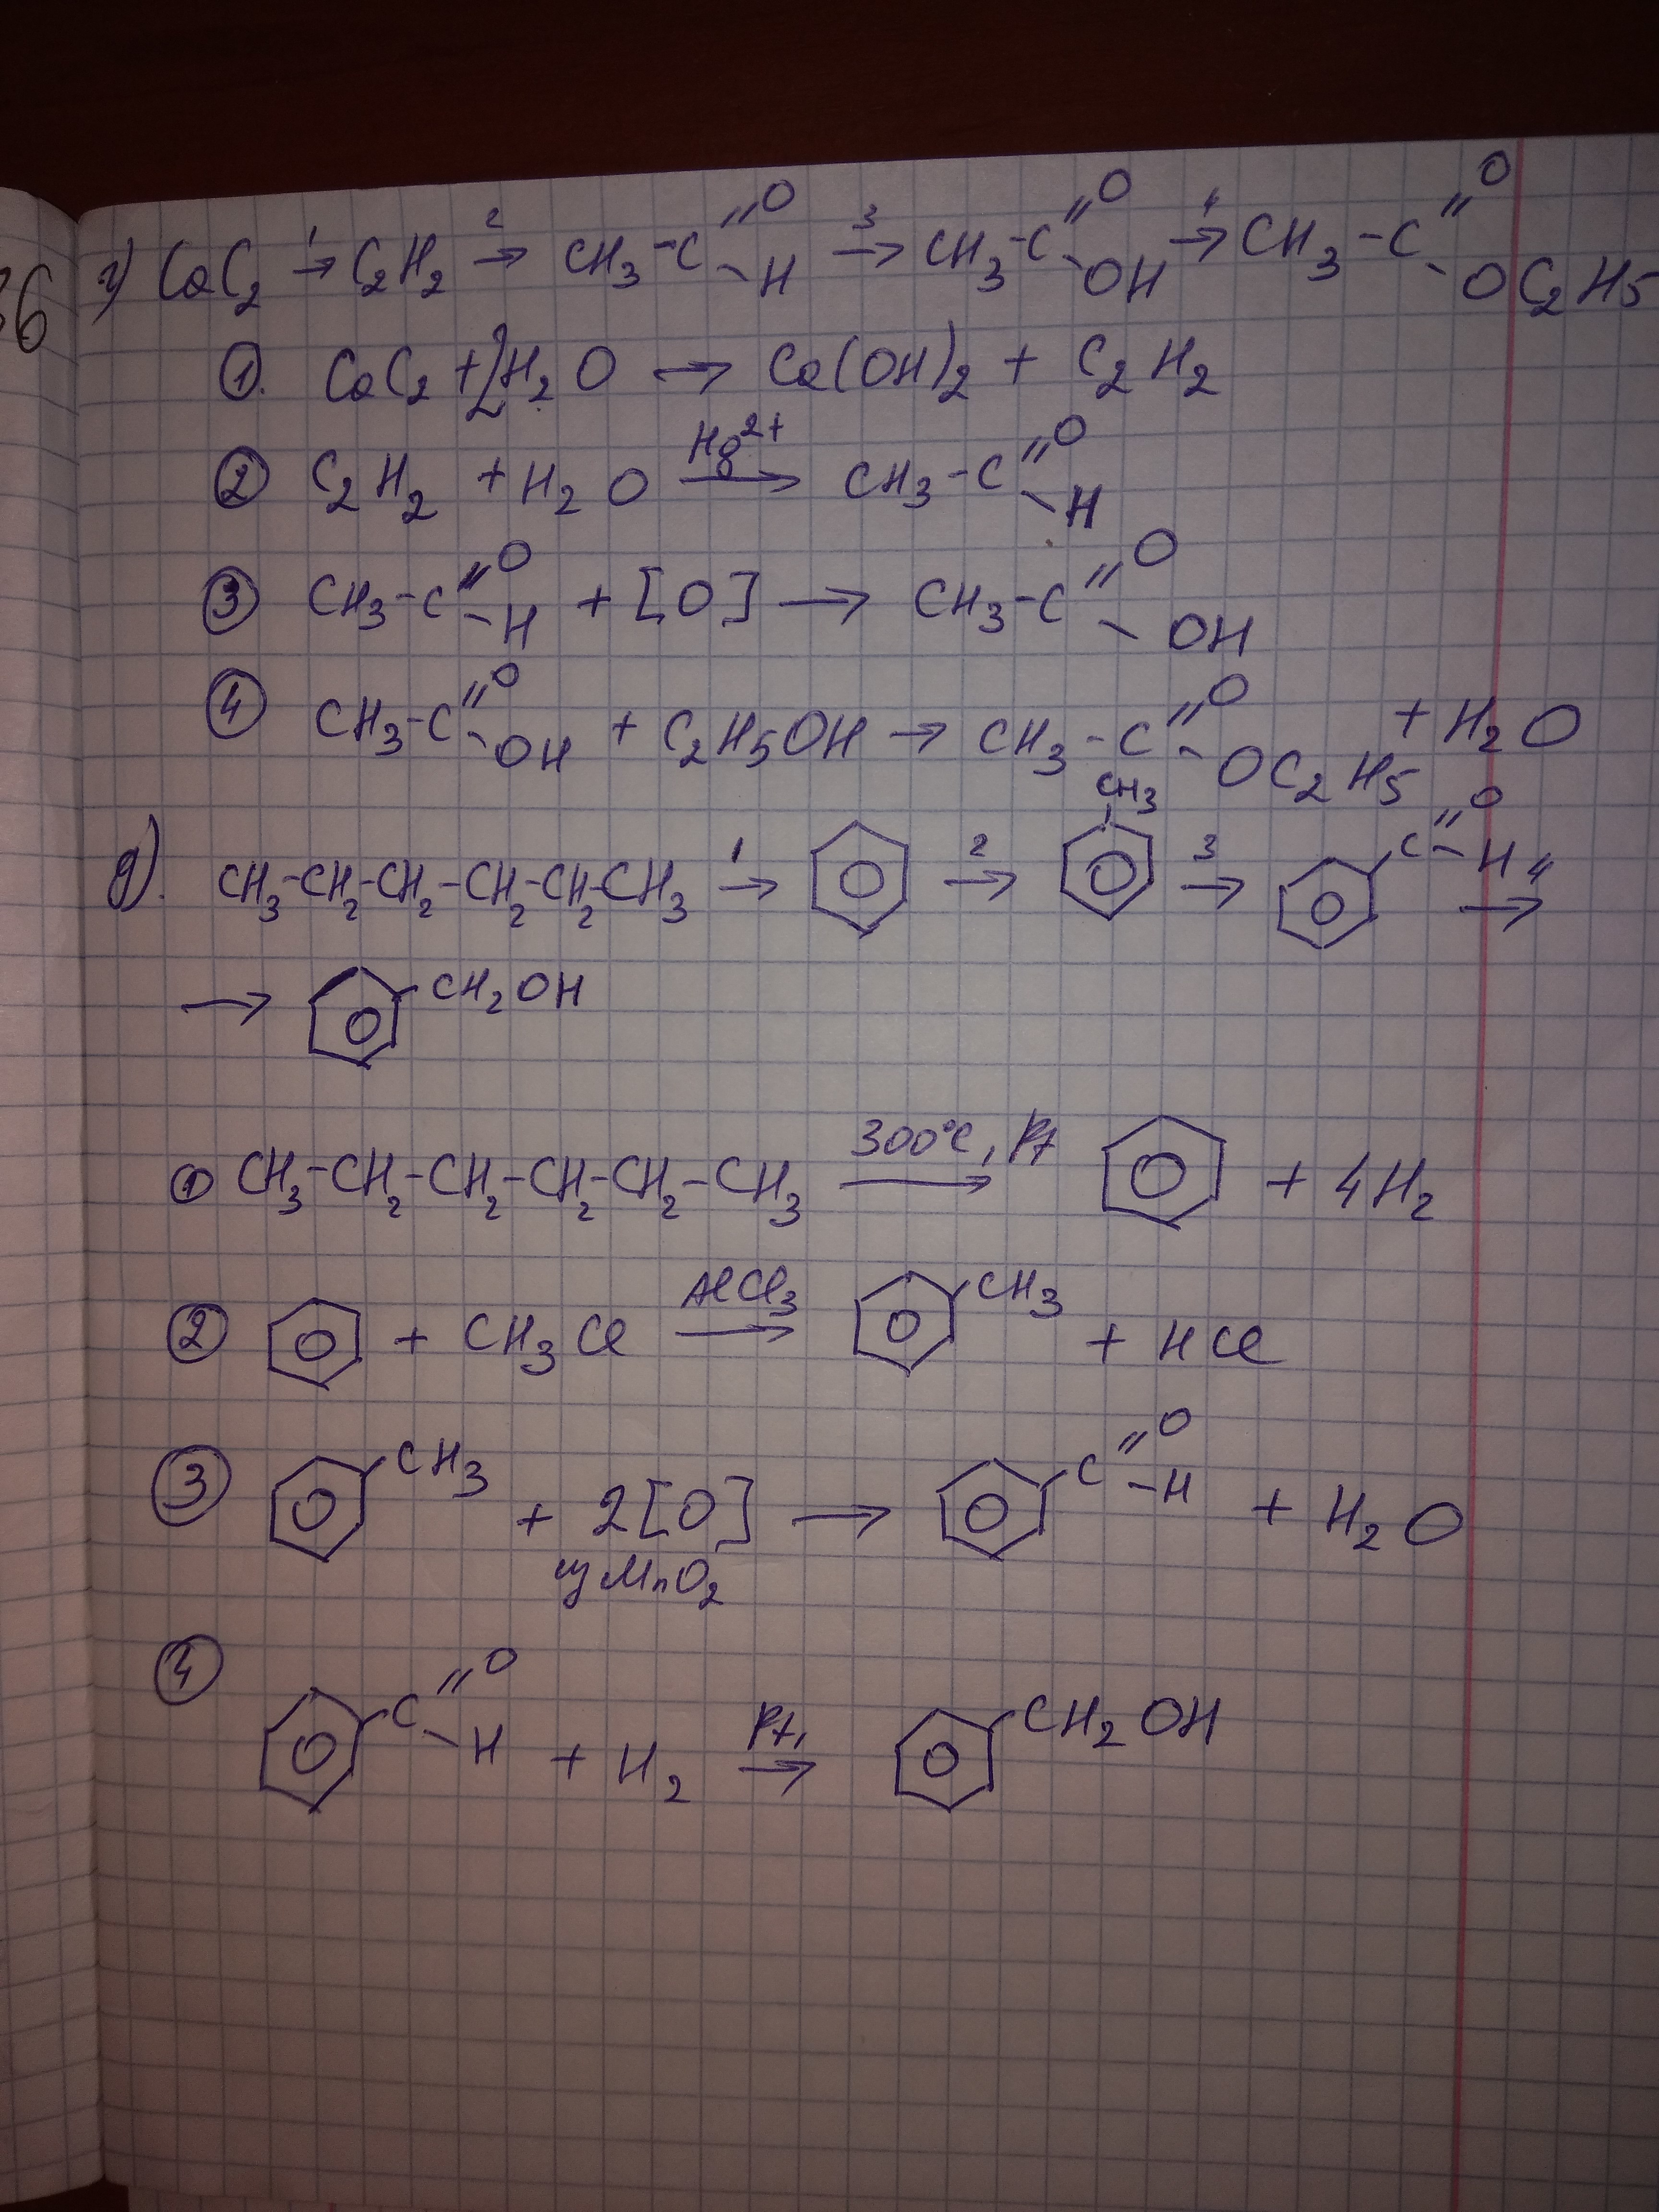 36
г) CaC2 1→ C2H2 2→ CH3-C=O-H 3→ CH3-C=O-OH 4→ CH3-C=O-OC2H5
1. CaC2 + 2H2O → Ca(OH)2 + C2H2
2 C2H2 + H2O Hg2+→ CH3-C=O-H
3 CH3-C=O-H + [O] → CH3-C=O-OH
4 CH3-C=O-OH + C2H5OH → CH3-C=O-OC2H5 + H2O
д). CH3-CH2-CH2-CH2-CH2-CH3 1→ 2→ CH3 3→ C=O-H 4→
→ CH2OH
1 CH3-CH2-CH2-CH2-CH2-CH3 300°C, Pt→ + 4H2
2 + CH3Cl AlCl3→ CH3 + HCl
3 CH3 + 2[O] → C=O-H + H2O
из MnO2
4 C=O-H + H2 Pt,→ CH2OH